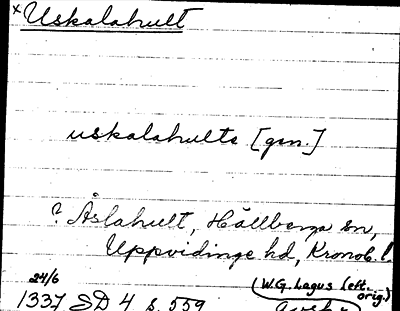 ×Uskalahult
uskalahults [gen.]
? Åslahult, Hällberga sn,
Uppvidinge hd, Kronob. l.
24/6 (W.G. Lagus (eft. orig.)
1337 SD 4 s. 559